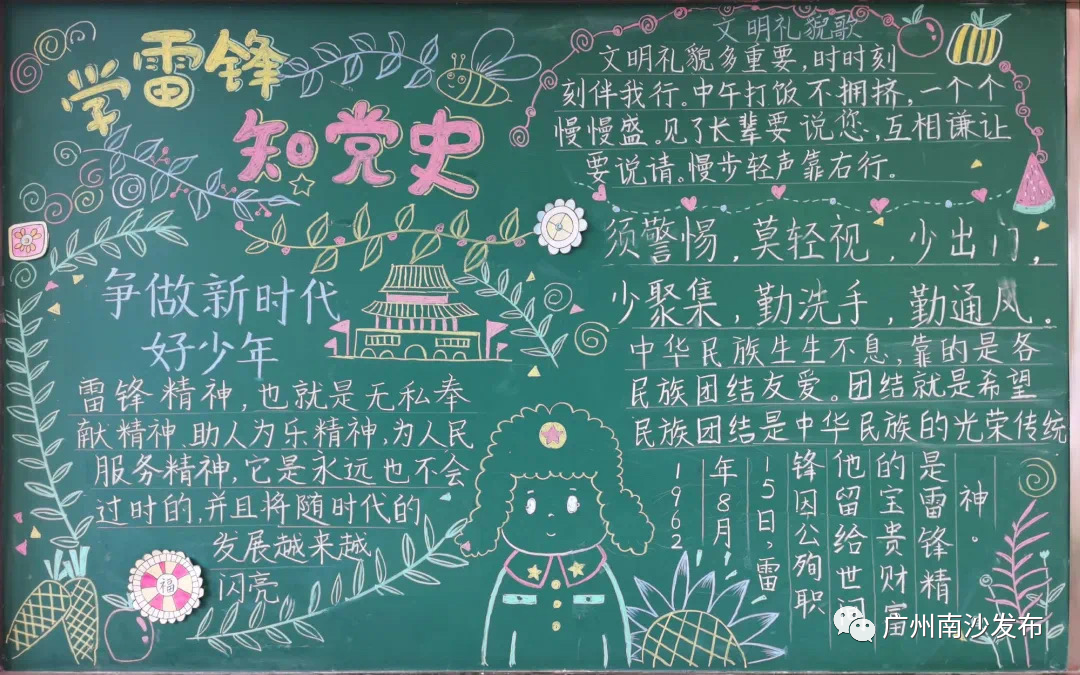 学雷锋
知党史
争做新时代
好少年
雷锋精神,也就是无私奉
献精神、助人为乐精神,为人民
服务精神,它是永远也不会
过时的,并且将随时代的
发展越来越
闪亮
福
文明礼貌歌
文明礼貌多重要,时时刻
刻伴我行。中午打饭不拥挤,一个个
慢慢盛。见了长辈要说您,互相谦让
要说请。慢步轻声靠右行。
须警惕,莫轻视,少出门,
少聚集,勤洗手,勤通风。
中华民族生生不息,靠的是各
民族团结友爱。团结就是希望
民族团结是中华民族的光荣传统
1962
年8月
15日,雷
锋因公殉职
他留给世间
的宝贵财富
是雷锋精
神。
广州南沙发布